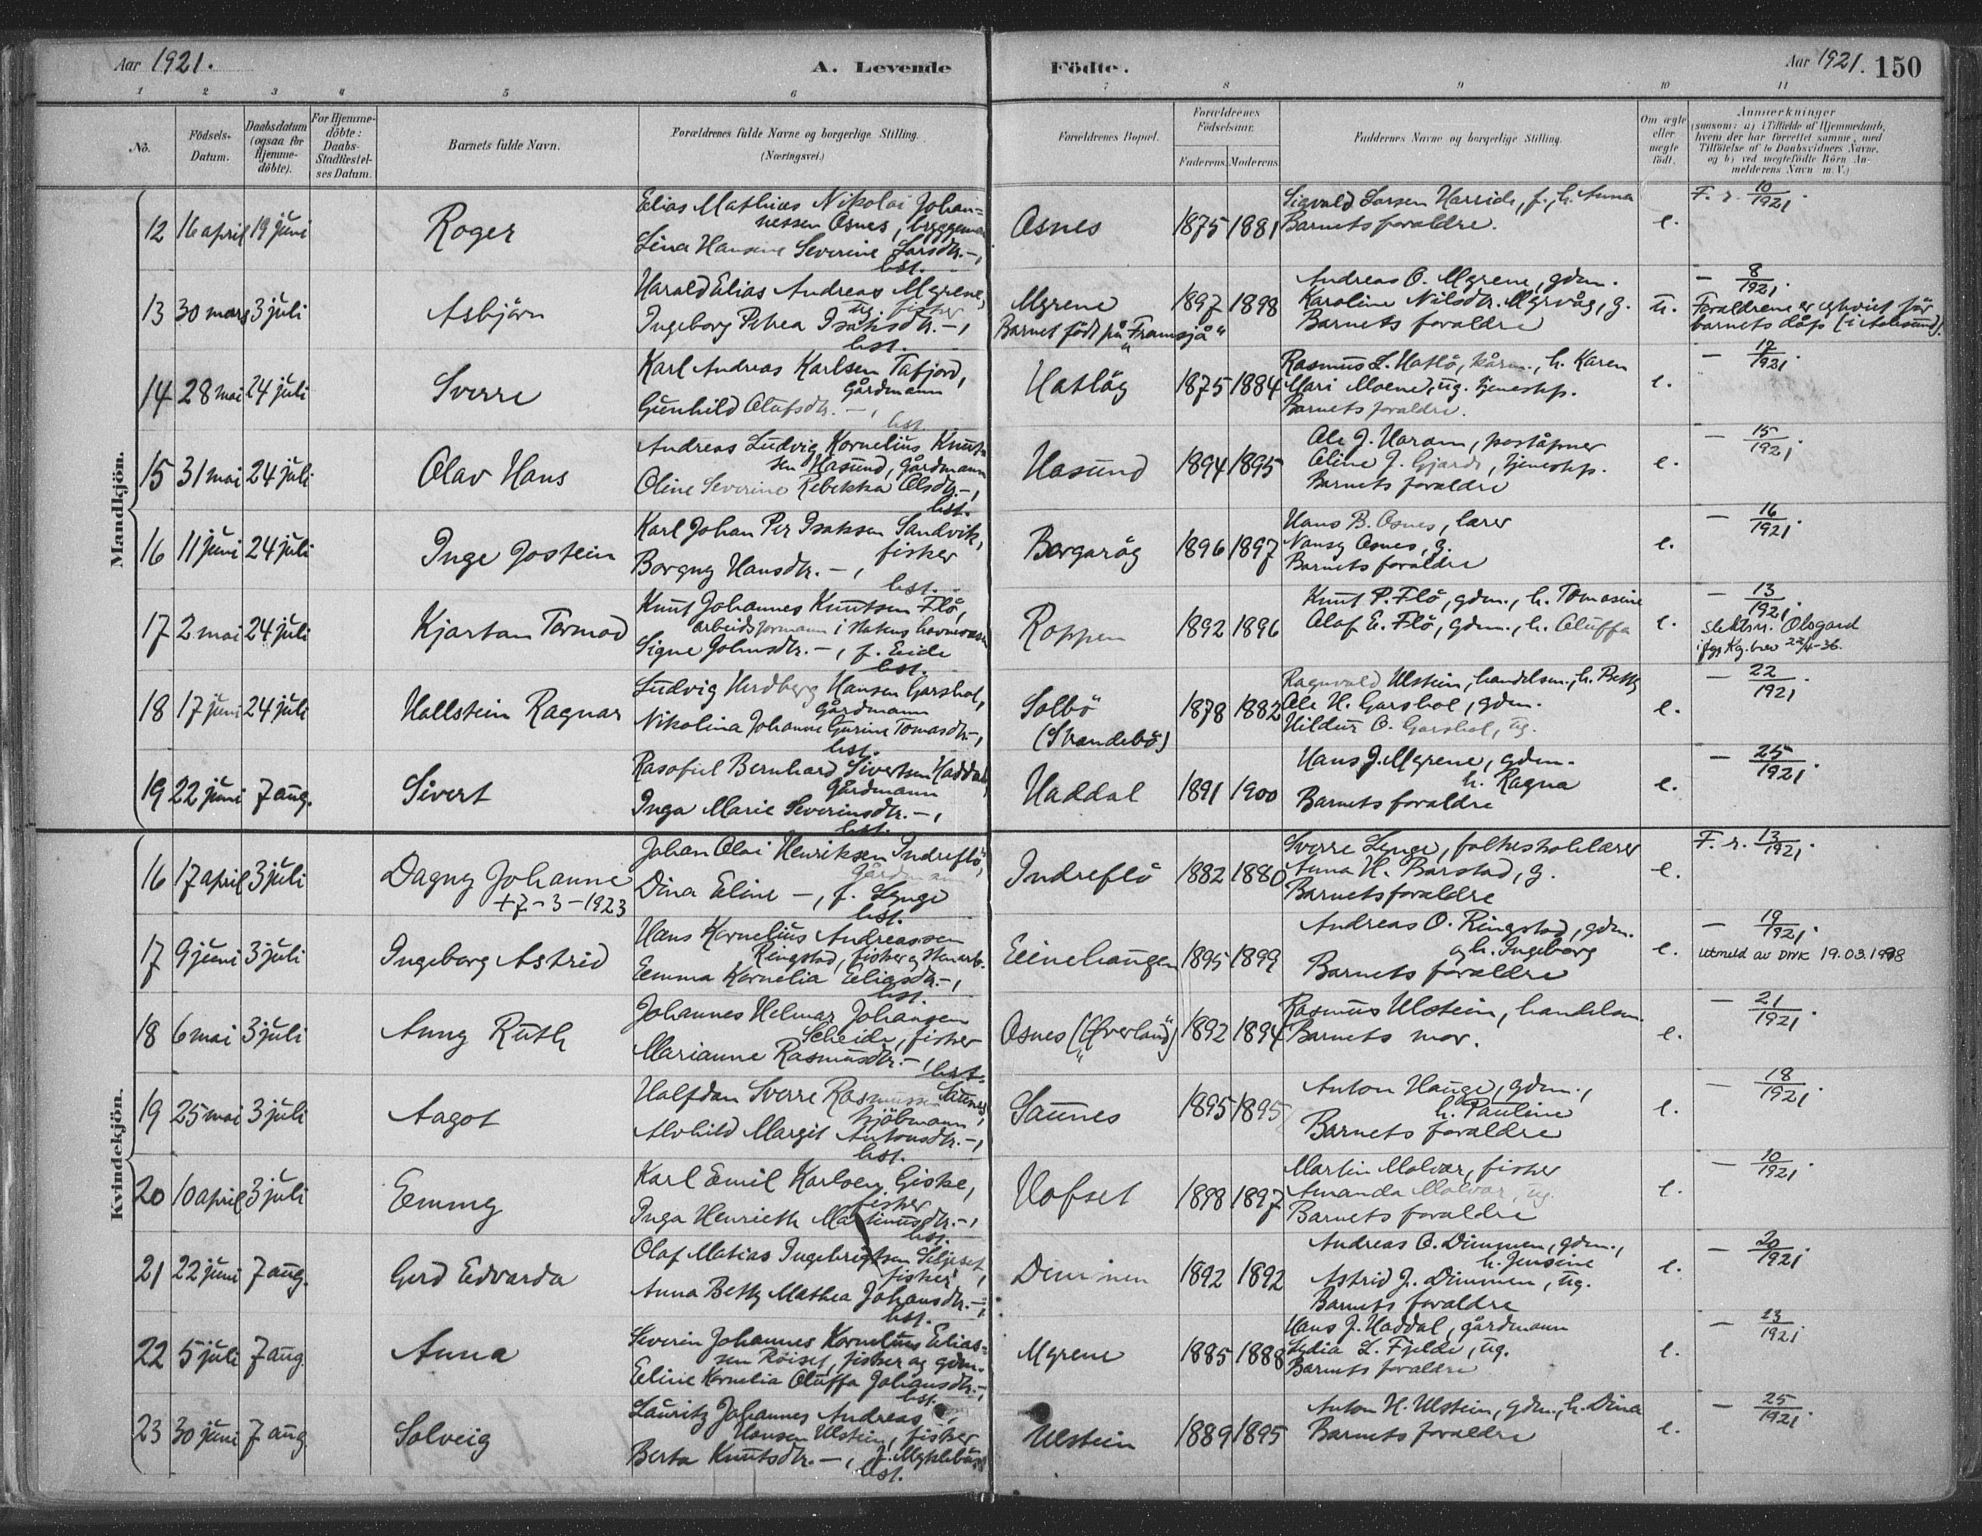 Aar 1921.
A. Levende
Födte.
Aar 1921. 150
1 2 3 4 5 6 7 8 9 10 11
No.
Födsels-Datum.
Daabsdatum (ogsaa for Hjemme-döbte).
For Hjemme-döbte: Daabs-Stadfæstel-ses Datum.
Barnets fulde Navn.
Forældrenes fulde Navne og borgerlige Stilling.
(Næringsvei.)
Forældrenes Bopæl.
Forældrenes Födselsaar.
Faderens. Moderens.
Faddernes Navne og borgerlige Stilling.
Om ægte eller uægte födt.
Anmærkninger
(saasom: a) i Tilfælde af Hjemmedaab,
hvem der har forrettet samme, med
Tilföielse af to Daabsvidners Navne,
og b) ved uægtefödte Börn An-
melderens Navn m. V.)
Mandkjön.
12 16 april 19 juni Roger
Elias Mathias Nikolai Johan=
nessen Osnes, bryggeman
Lina Hansine Severine Larsdtr. –,
hst.
Osnes 1875 1881
Sigvald Larsen Hareide, f., h. Anna
Barnets foraldre.
e. F. r. 10/1921.
13 30 mars 3 juli Asbjörn
Harald Elias Andreas Myrene,
ug. fisker
Ingeborg Petrea Isaksdtr. –,
hst.
Myrene 1897 1898
Barnet född på "Framsjå"
Andreas O. Myrene, gdm.
Karoline Nilsdtr. Myrvåg, g.
Barnets foraldre
u. – 8/1921.
Foraldrene er egteviet før
barnets dåp (i Aalesund).
14 28 mai 24 juli Sverre
Karl Andreas Karlsen Tafjord,
Gårdmann
Gunhild Olufsdtr. –,
hst.
Hatlöy 1875 1884
Rasmus L. Hatlö, kårm., h. Karen
Mari Moene, ug. tjenestep.
Barnets foraldre.
e. – 12/1921.
15 31 mai 24 juli Olav Hans
Andreas Ludvig Kornelius Knut-
sen Hasund, gårdmann
Oline Severine Rebekka Olsdtr. –,
hst.
Hasund 1894 1895
Ole J. Haram, poståpner
Oline J. Gjerde, tjenestep.
Barnets foraldre
e. – 15/1921.
16 11 juni 24 juli Inge Jostein
Karl Johan Per Isaksen Sandvik,
fisker
Borgny Hansdtr. –,
hst.
Borgaröy 1896 1897
Hans B. Osnes, lærer
Nansy Osnes, g.
Barnets foraldre
e. – 16/1921.
17 2 mai 24 juli Kjartan Tormod
Knut Johannes Knutsen Flö,
arbeidsformann i statens havnevesen
Signe Johnsdtr. –, f. Eide
hst.
Roppen 1892 1896
Knut P. Flö, gdm., h. Tomasine
Olaf E. Flö, gdm., h. Oluffa
e. – 13/1921.
slektsn. Olsgard
ifgs Kg. brev 22/4-36.
18 17 juni 24 juli Hallstein Ragnar
Ludvig Herdberg Hansen Garshol,
Gårdmann
Nikolina Johanne Gurine Tomasdtr. –,
hst.
Solbö (Strandebö) 1878 1882
Ragnvald Ulstein, handelsm., h. Betty
Ole H. Garshol, gdm.
Hildur O. Garshol, ug.
e. – 22/1921.
19 22 juni 7 aug. Sivert
Rasofiel Bernhard Sivertsen Haddal,
Gårdmann
Inga Marie Severinsdtr. –,
hst.
Haddal 1891 1900
Hans J. Myrene, gdm.
h. Ragna
Barnets foraldre
e. – 25/1921.
Kvindekjön.
16 17 april 3 juli Dagny Johanne
+ 7–3–1923
Johan Olai Henriksen Indreflö,
Gårdmann
Dina Eline –, f. Lynge
hst.
Indreflö 1882 1880
Sverre Lynge, folkeskolelærer
Anna H. Barstad, g.
Barnets foraldre
e. F. r. 13/1921.
17 9 juni 3 juli Ingeborg Astrid
Hans Kornelius Andreassen
Ringstad, fisker og stenarb.
Emma Kornelia Eliasdtr. –,
hst.
Einehaugen 1895 1899
Andreas O. Ringstad, gdm.
og h. Ingeborg
Barnets foraldre
e. – 19/1921.
utmeld av DNK 19.03.1998
18 6 mai 3 juli Anny Ruth
Johannes Helmar Johansen
Scheide, fisker
Marianne Rasmusdtr. –,
hst.
Osnes ("Överland") 1892 1894
Rasmus Ulstein, handelsm.
Barnets mor.
e. – 21/1921.
19 25 mai 3 juli Aagot
Halfdan Sverre Rasmussen Saunes,
kjöbmann
Alvhild Margit Antonsdtr. –,
hst.
Saunes 1895 1895
Anton Hauge, gdm.,
h. Pauline
Barnets foraldre
e. – 18/1921.
20 10 april 3 juli Emmy
Karl Emil Karlsen Giske,
fisker
Inga Henriette Martinusdtr. –,
hst.
Hofset 1898 1897
Martin Molvær, fisker
Amanda Molvær, ug.
Barnets foraldre
e. – 10/1921.
21 22 juni 7 aug. Gerd Edvarda
Olaf Matias Ingebrigtsen Seljeset,
fisker
Anna Betty Mathea Johansdtr. –,
hst.
Dimmen 1892 1892
Andreas O. Dimmen, gdm.,
h. Jensine
Astrid J. Dimmen, ug.
Barnets foraldre
e. – 20/1921.
22 5 juli 7 aug. Anna
Severin Johannes Kornelius Elias-
sen Röiset, fisker og gdm.
Eline Kornelia Oluffa Johansdtr. –,
hst.
Myrene 1885 1888
Hans J. Haddal, gårdmann
Lydia L. Fjelde, ug.
Barnets foraldre
e. – 23/1921.
23 30 juni 7 aug. Solveig
Lauritz Johannes Andreas
Hansen Ulstein, fisker
Berta Knutsdtr. –, f. Myklebust
hst.
Ulstein 1889 1895
Anton H. Ulstein, gdm., h. Dina
Barnets foraldre
e. – 25/1921.